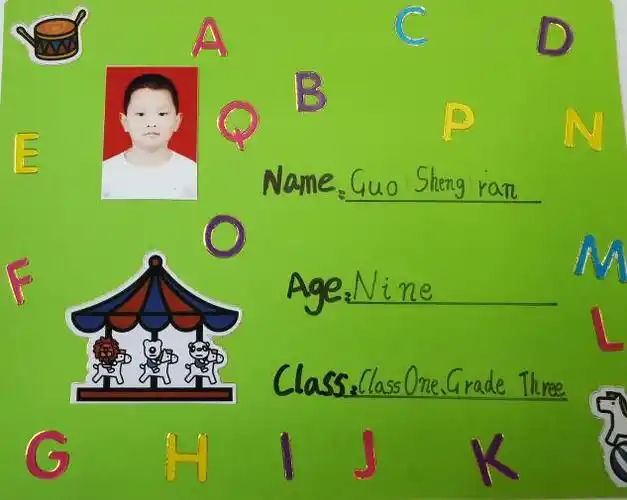 A C D
B
E Q P N
Name: Guo Sheng ran
O
F M
Age: Nine
L
Class: Class One, Grade Three
G H I J K